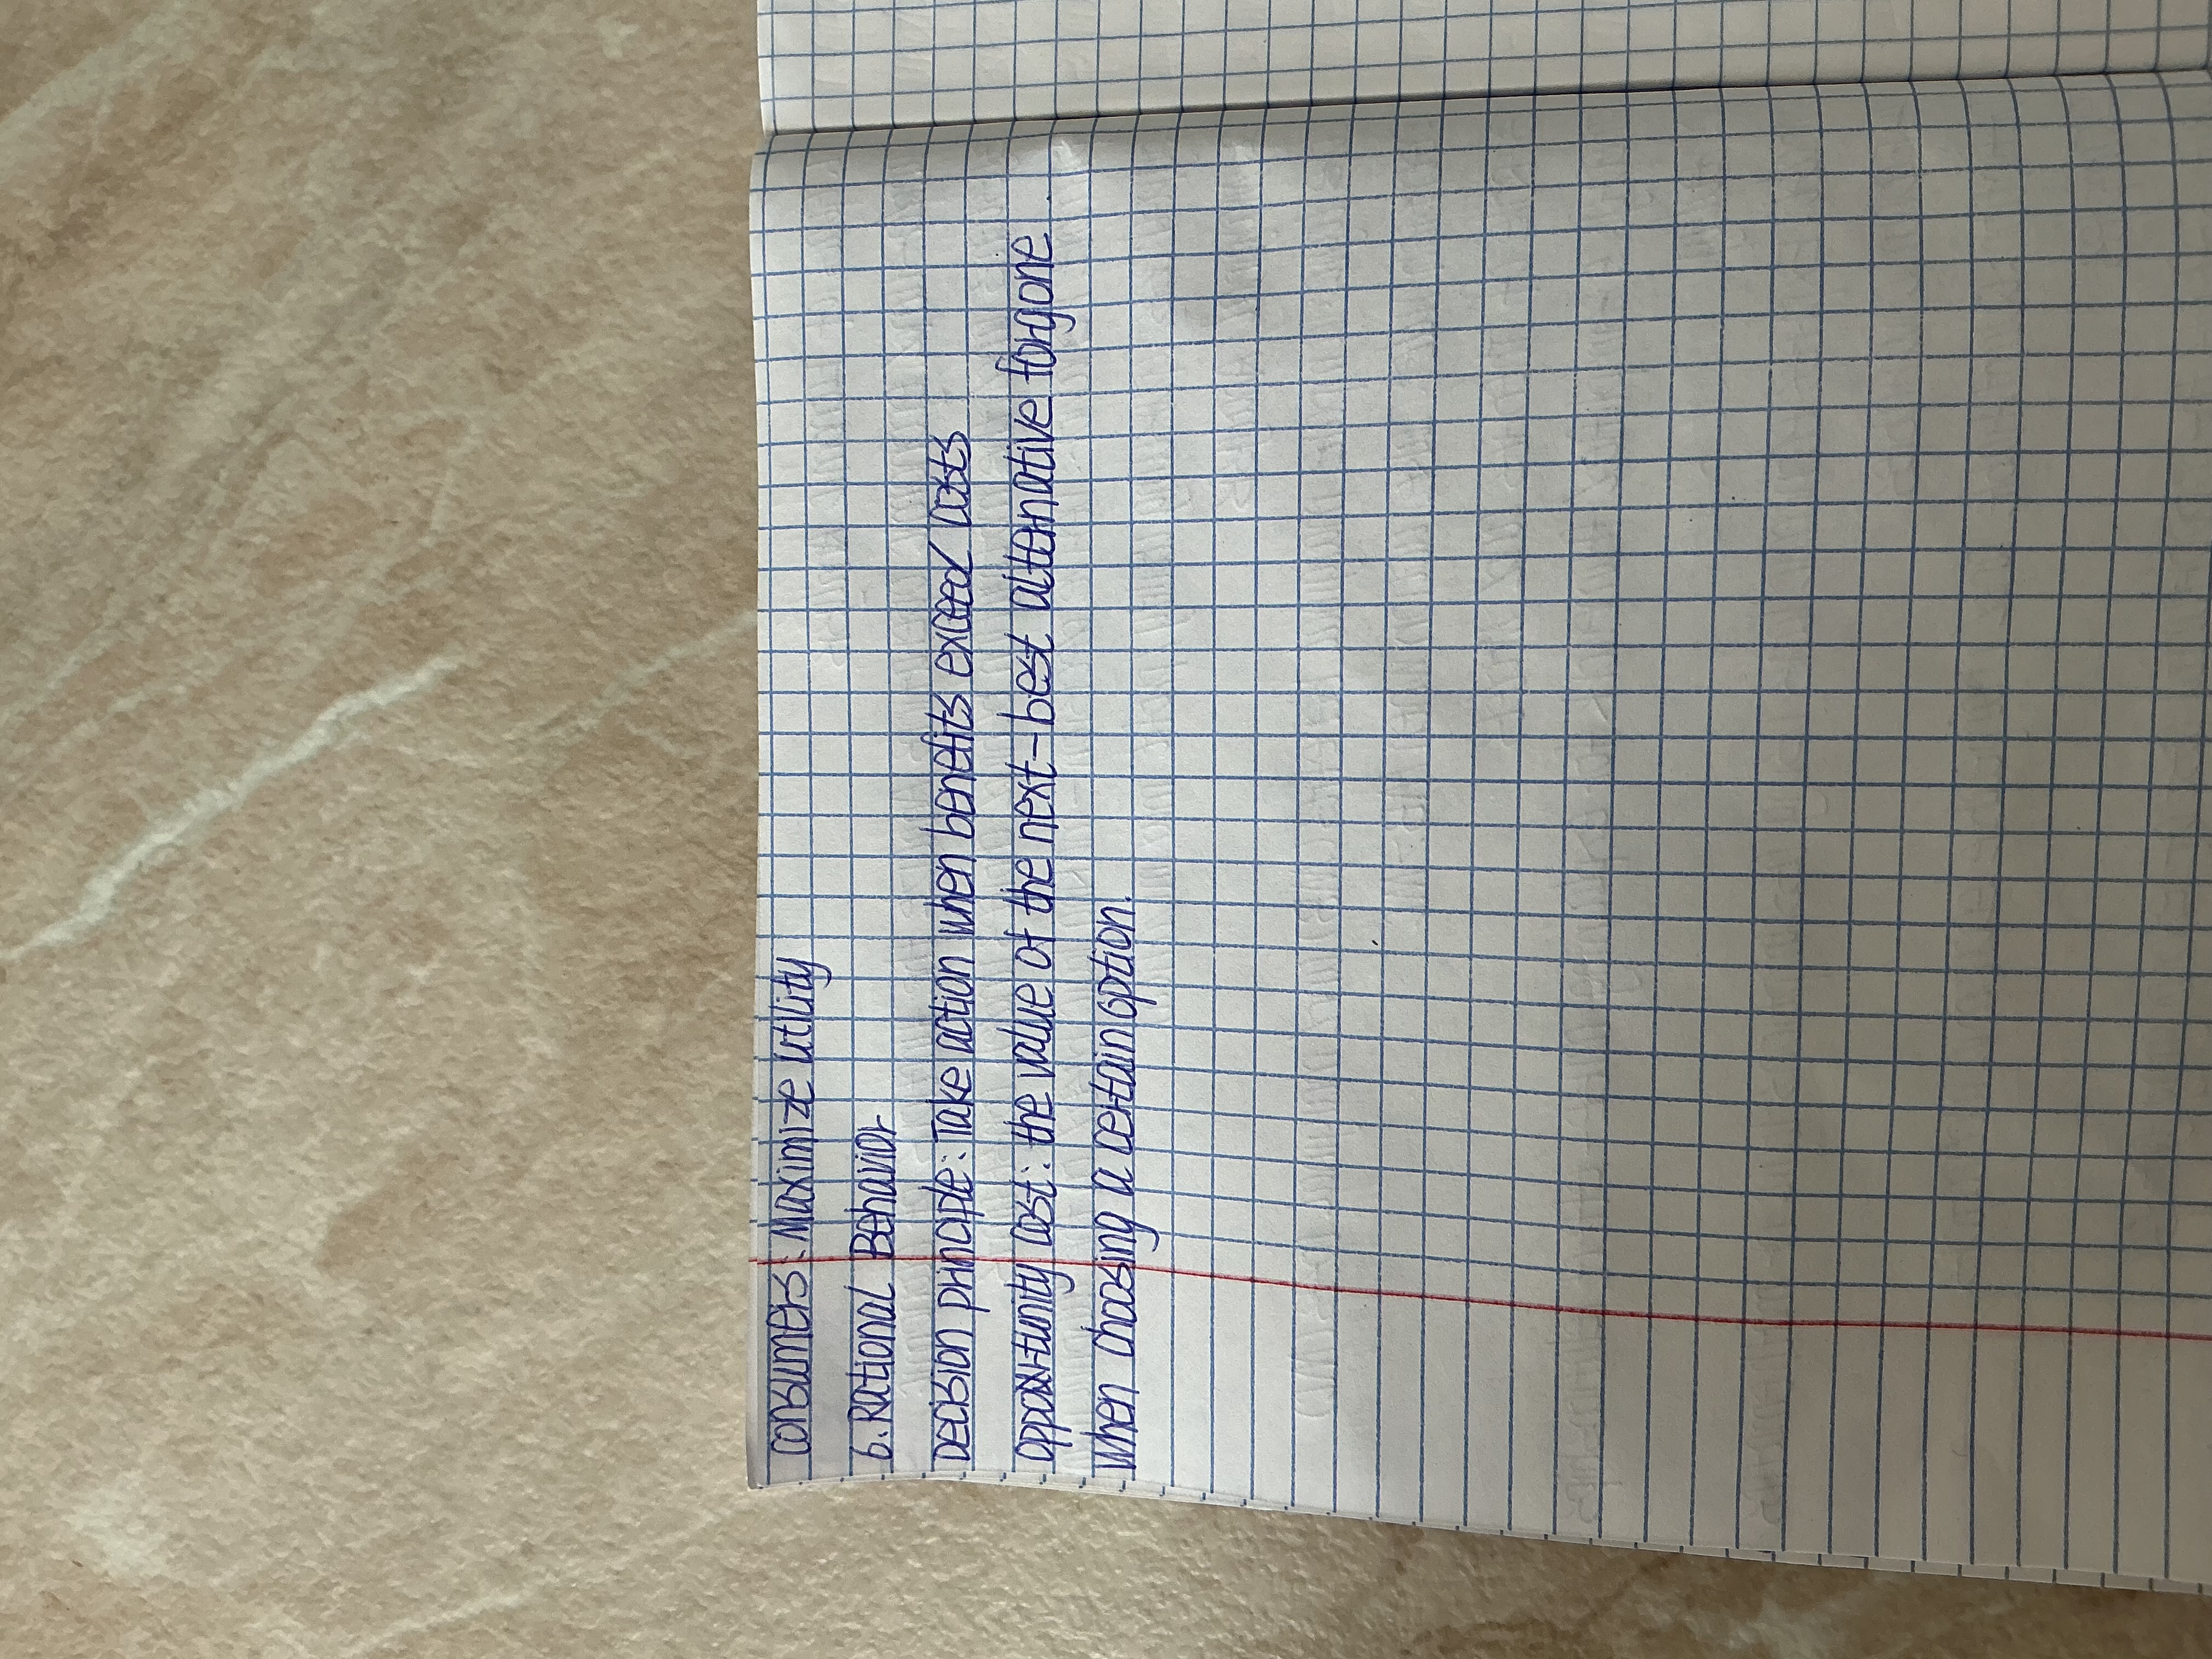 consumers: Maximize utility
6. Rational Behavior
Decision principle: Take action when benefits exceed costs
opportunity cost: the value of the next-best alternative forgone
when choosing a certain option.